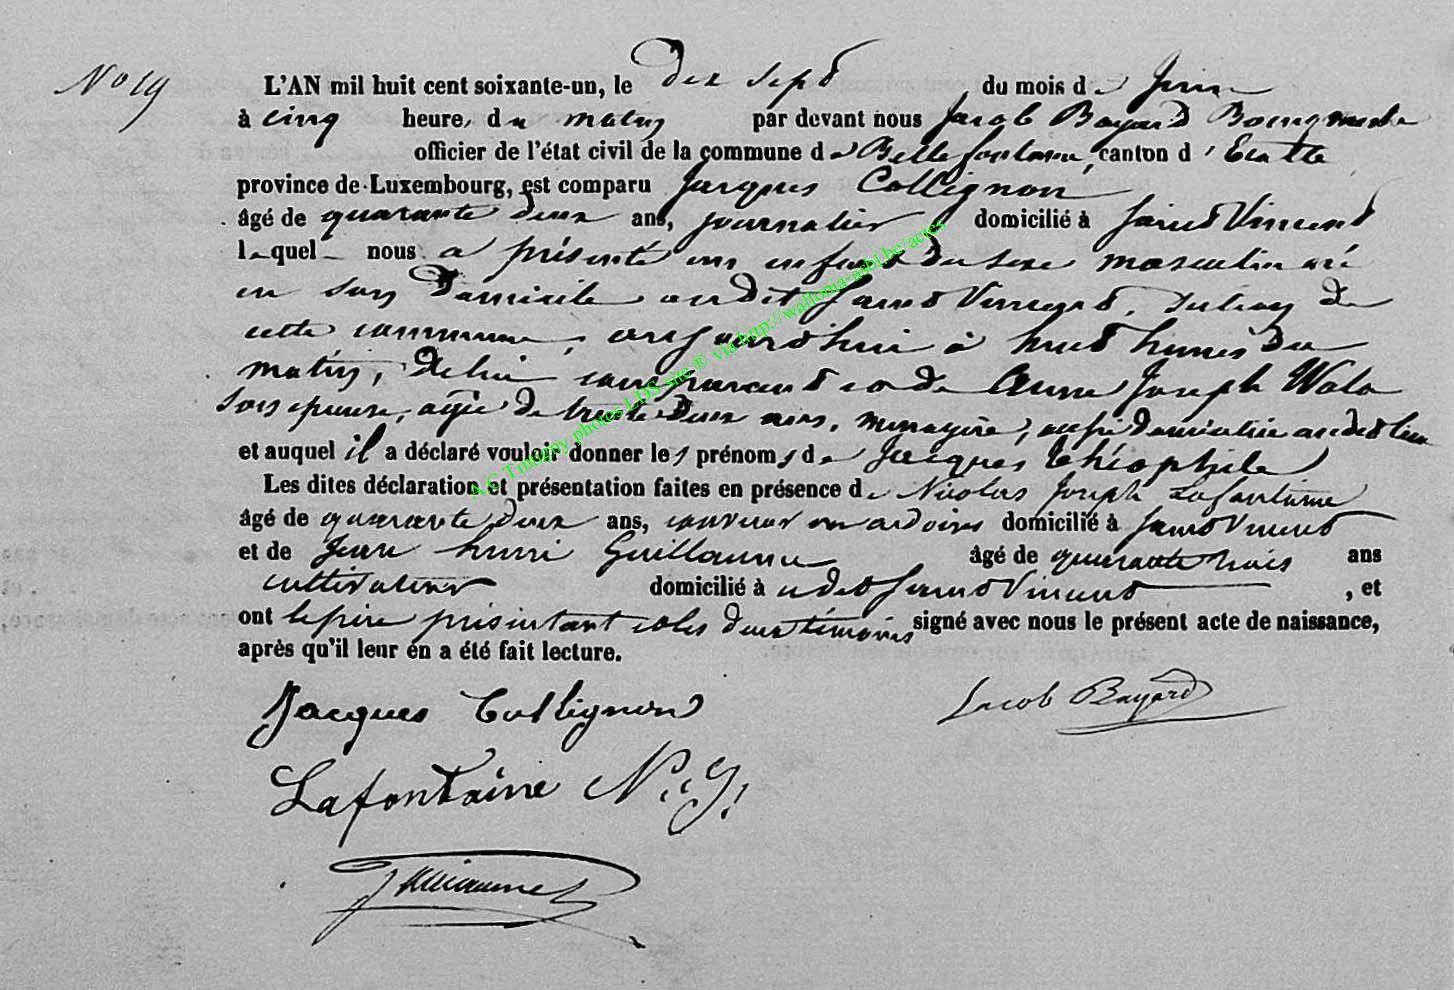 No 19
L'AN mil huit cent soixante-un, le dix sept du mois de Juin
à cinq heures du matin par devant nous Jacob Bayard Bourgmestre
officier de l'état civil de la commune de Bellefontaine, canton d'Etalle
province de Luxembourg, est comparu Jacques Collignon,
âgé de quarante deux ans, journalier domicilié à Saint Vincent
lequel nous a présenté un enfant du sexe masculin né
en son domicile audit Saint Vincent, section de
cette commune, aujourd'hui à huit heures du
matin, de lui comparant et de Anne Joseph
son épouse, agée de trente deux ans, ménagère, aussi domiciliée audit lieu
et auquel il a déclaré vouloir donner les prénoms de Jacques Théophile
Les dites déclaration et présentation faites en présence de Nicolas Joseph Lafontaine
âgé de quarante deux ans, couvreur en ardoises domicilié à Saint Vincent
et de Jean henri Guillaume âgé de quarante trois ans
cultivateur domicilié à udit Saint Vincent, et
ont le père présentant et les deux témoins signé avec nous le présent acte de naissance,
après qu'il leur en a été fait lecture.
Jacques Collignon
Jacob Bayard
Lafontaine N. J.
Guillaume
A.C Tintigny photos LDS site ® via http://wallonia-asbl.be/actes